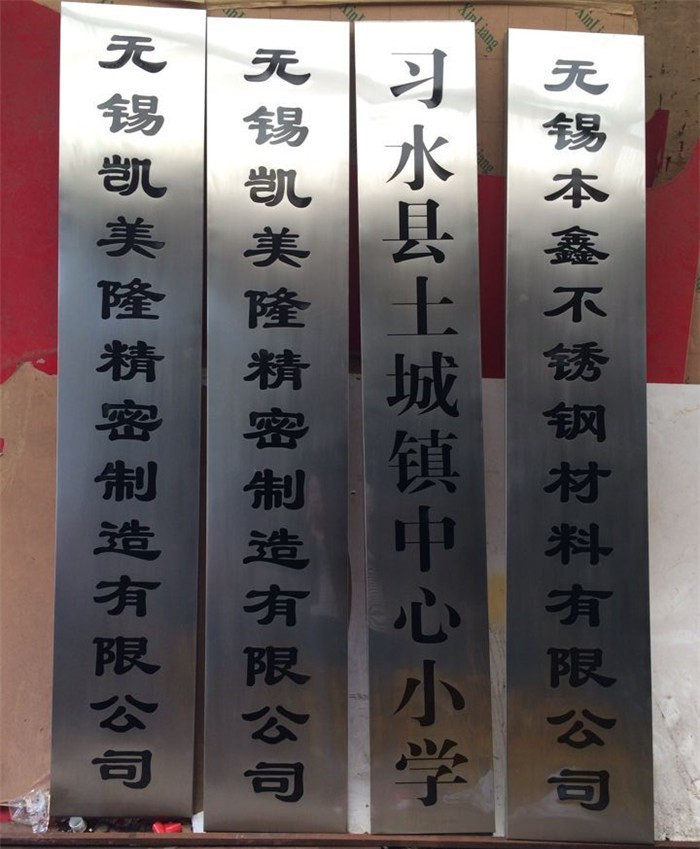 无锡凯美隆精密制造有限公司
无锡凯美隆精密制造有限公司
习水县土城镇中心小学
无锡本鑫不锈钢材料有限公司
XinLiang
XinLiang
XinLiang